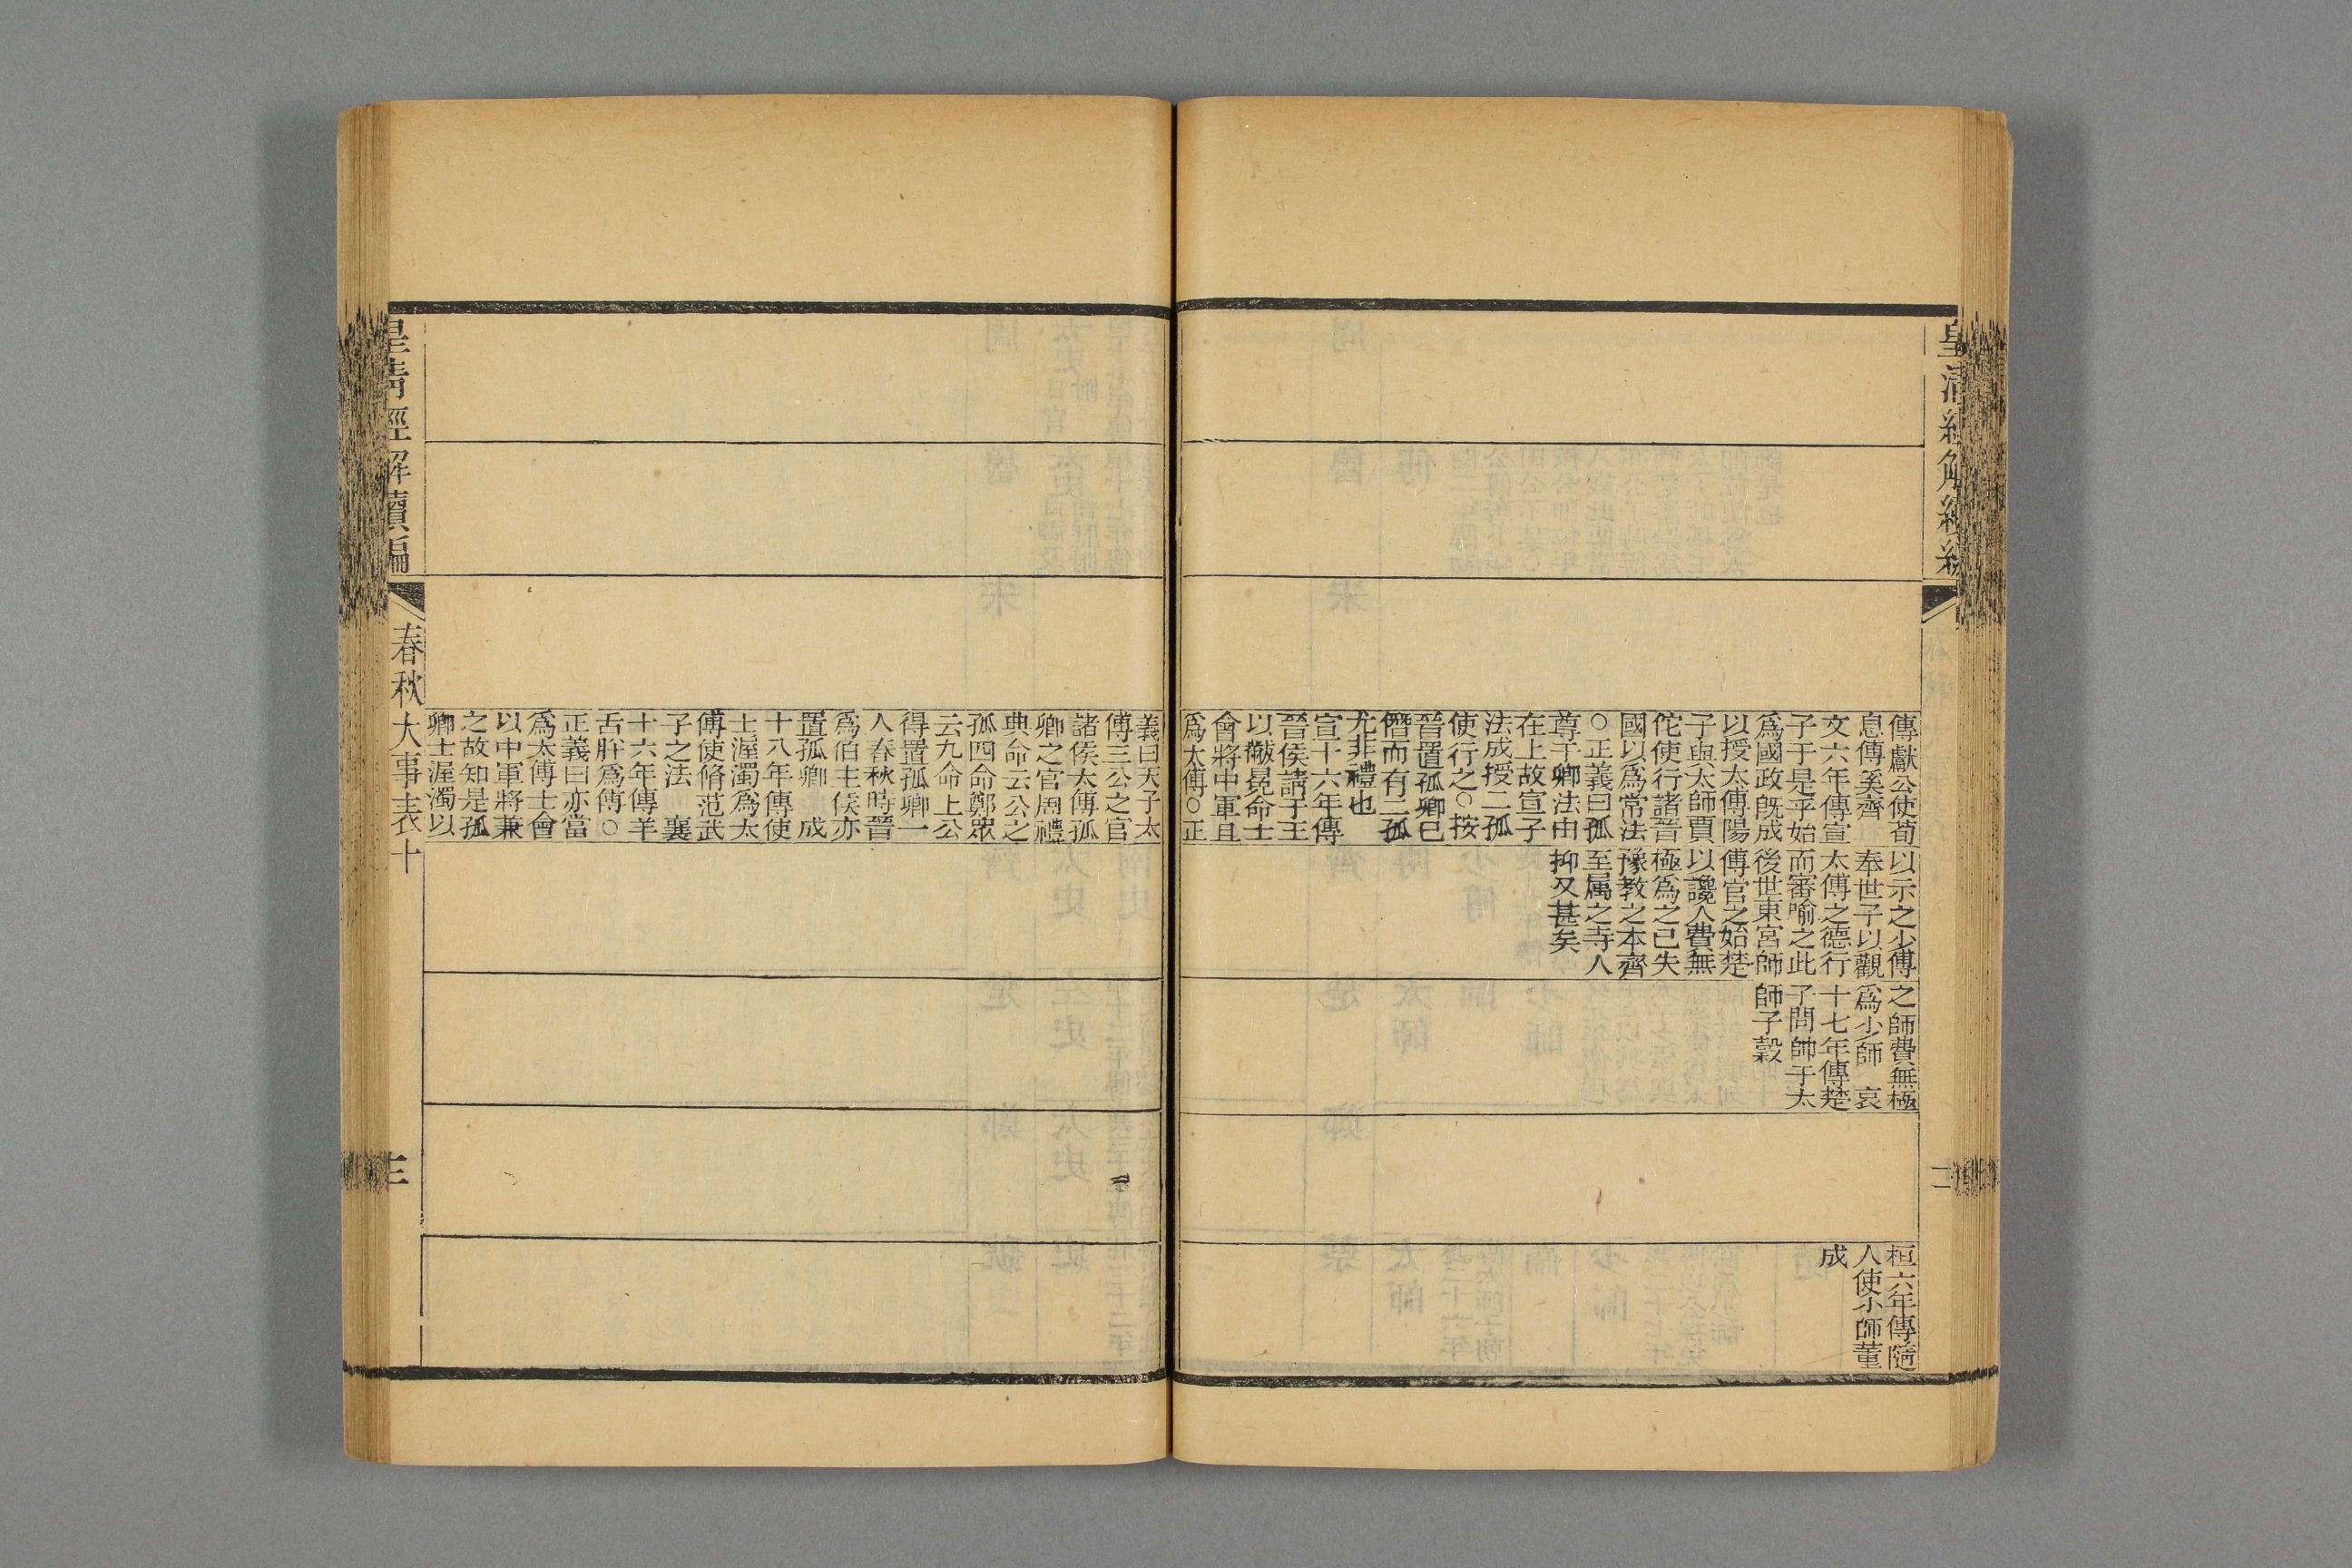 傳獻公使荀
息傅奚齊
文六年傳宣
子于是乎始
爲國政旣成
以授太傅陽
子與太師賈
佗使行諸晉
國以爲常法
○正義曰孤
尊于卿法由
在上故宣子
法成授二孤
使行之○按
晉置孤卿已
僭而有二孤
尤非禮也
宣十六年傳
晉侯請于王
以黻冕命士
會將中軍且
爲太傅○正
以示之少傅
奉世子以觀
太傅之德行
而審喻之此
後世東宮師
傅官之始楚
以讒人費無
極爲之已失
豫教之本齊
至屬之寺人
抑又甚矣
之師費無極
爲少師　哀
十七年傳楚
子問帥于太
師子穀
桓六年傳隨
人使少師董
成
義曰天子太
傅三公之官
諸侯太傅孤
卿之官周禮
典命云公之
孤四命鄭衆
云九命上公
得置孤卿一
人春秋時晉
爲伯主侯亦
置孤卿　成
十八年傳使
士渥濁爲太
傅使脩范武
子之法　襄
十六年傳羊
舌肸爲傅○
正義曰亦當
爲太傅士會
以中軍將兼
之故知是孤
卿士渥濁以
皇清經解續編
春秋大事表十
三